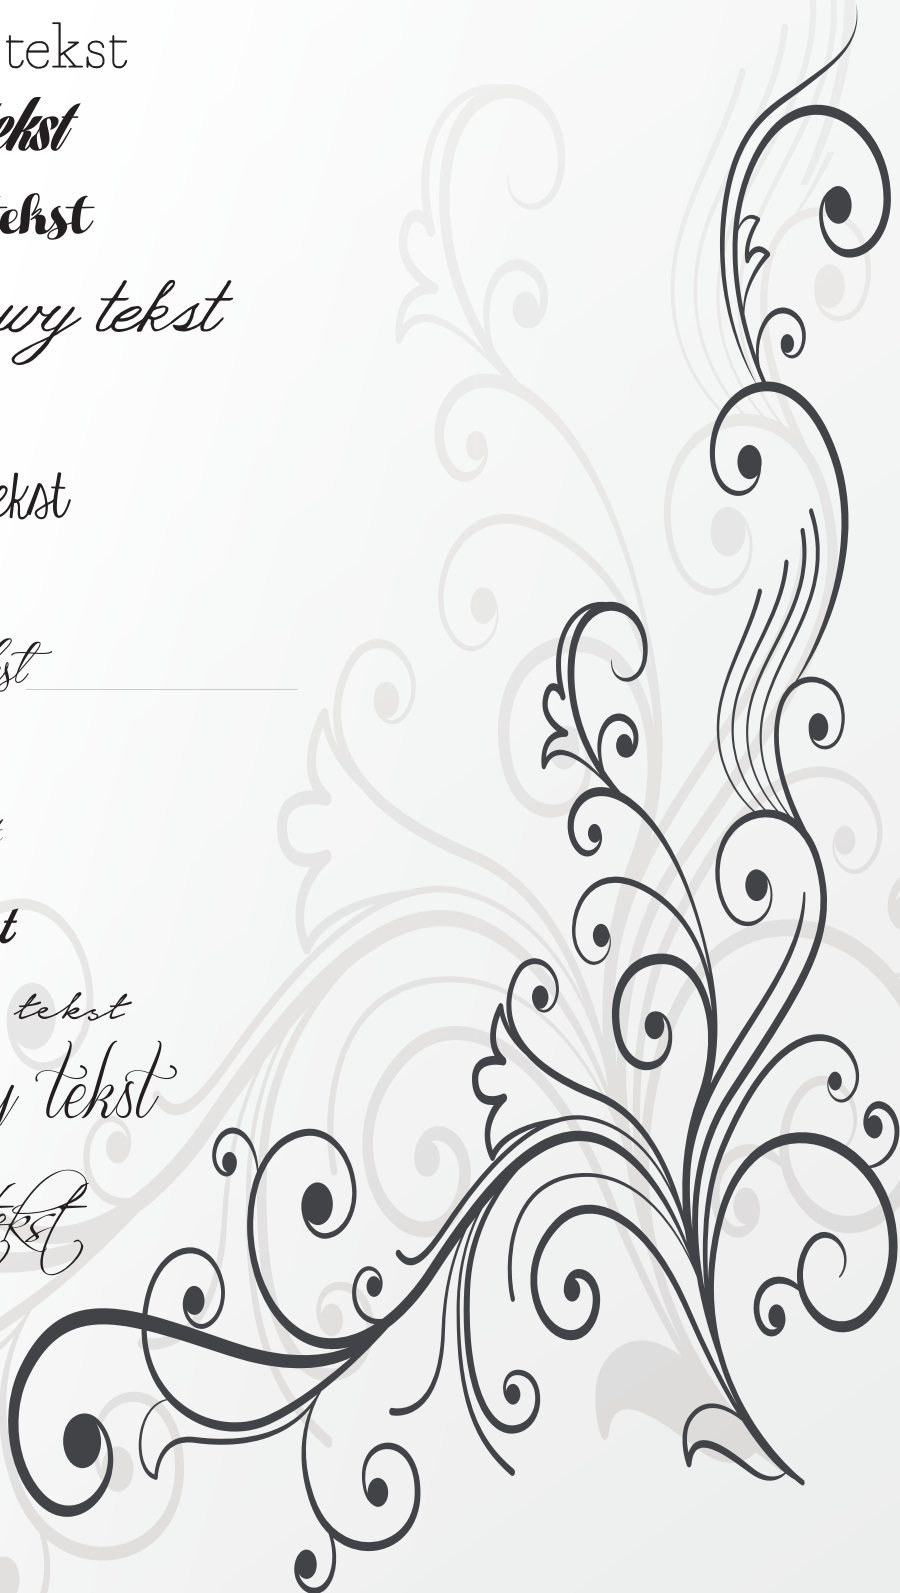 tekst
ekst
tekst
wy tekst
ekst
kst
t
t
tekst
y tekst
tekst